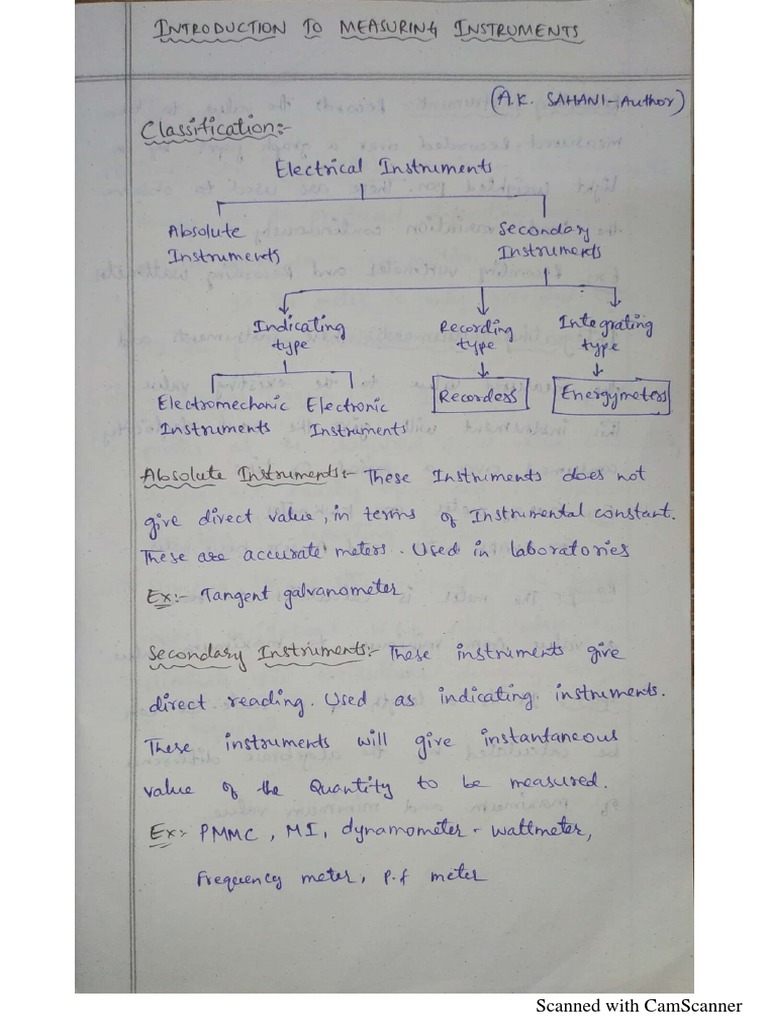 INTRODUCTION TO MEASURING INSTRUMENTS
(A.K. SAHANI-Author)
Classification:-
Electrical Instruments
Absolute Secondary
Instruments Instruments
Indicating Recording Integrating
type type type
Electromechanic Electronic Recorders Energymeters
Instruments Instruments
Absolute Instruments:- These Instruments does not
give direct value, in terms of Instrumental constant.
These are accurate meters. Used in laboratories
Ex:- Tangent galvanometer
Secondary Instruments:- These instruments give
direct reading. Used as indicating instruments.
These instruments will give instantaneous
value of the Quantity to be measured.
Ex:- PMMC, MI, dynamometer - wattmeter,
Frequency meter, P.f meter
Scanned with CamScanner